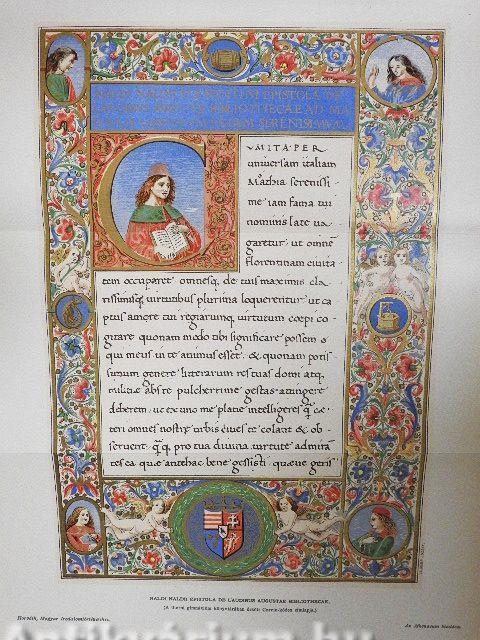 NALDI NALDII FLORENTINI EPISTOLA DE
LAVDIBVS AVGVSTAE BIBLIOTHECAE AD MA
SERENISSIMVM
VMITA PER
universam italiam
Mathia serenissi-
me iam fama tui
nominis late va-
garetur: ut omnē
florentinam civita-
tem occuparet omnesq, de tuis maximis cla-
rissimisq, virtutibus plurima loquerentur: ut ca-
ptus amore tui regiarumq, virtutum coepi co-
gitare quonam modo tibi significare possem
qui meus in te animus esset. & quonam potis-
simum genere litterarum res tuas domi atq,
militiae abs te pulcherrime gestas attingere
deberem. ut ex uno me plane intelligeres q̄ ce-
teri omnes nostrę urbis cives te colant & ob-
servent. q̄ q̄ pro tua divina virtute admira-
tes ea quae antehac bene gessisti quaeve geris
NALDI NALDII EPISTOLA DE LAUDIBUS AUGUSTAE BIBLIOTHECAE.
(A thorni gimnázium könyvtárában őrzött Corvin-kódex címlapja.)
Horváth, Magyar Irodalomtörténethez.
Az Athenaeum